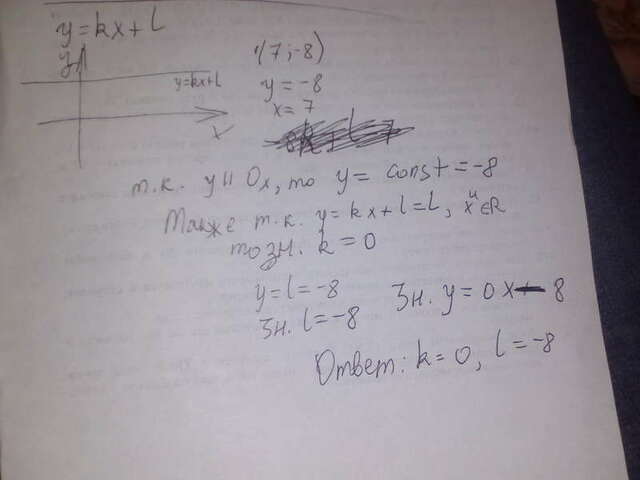 y = kx + l
y
y = kx + l
x
(7; -8)
y = -8
x = 7
т.к. y || Ox, то y = const = -8
Также т.к. y = kx + l = L, x ∈ R
и
то зн. k = 0
y = l = -8
Зн. l = -8
Зн. y = 0x - 8
Ответ: k = 0, l = -8